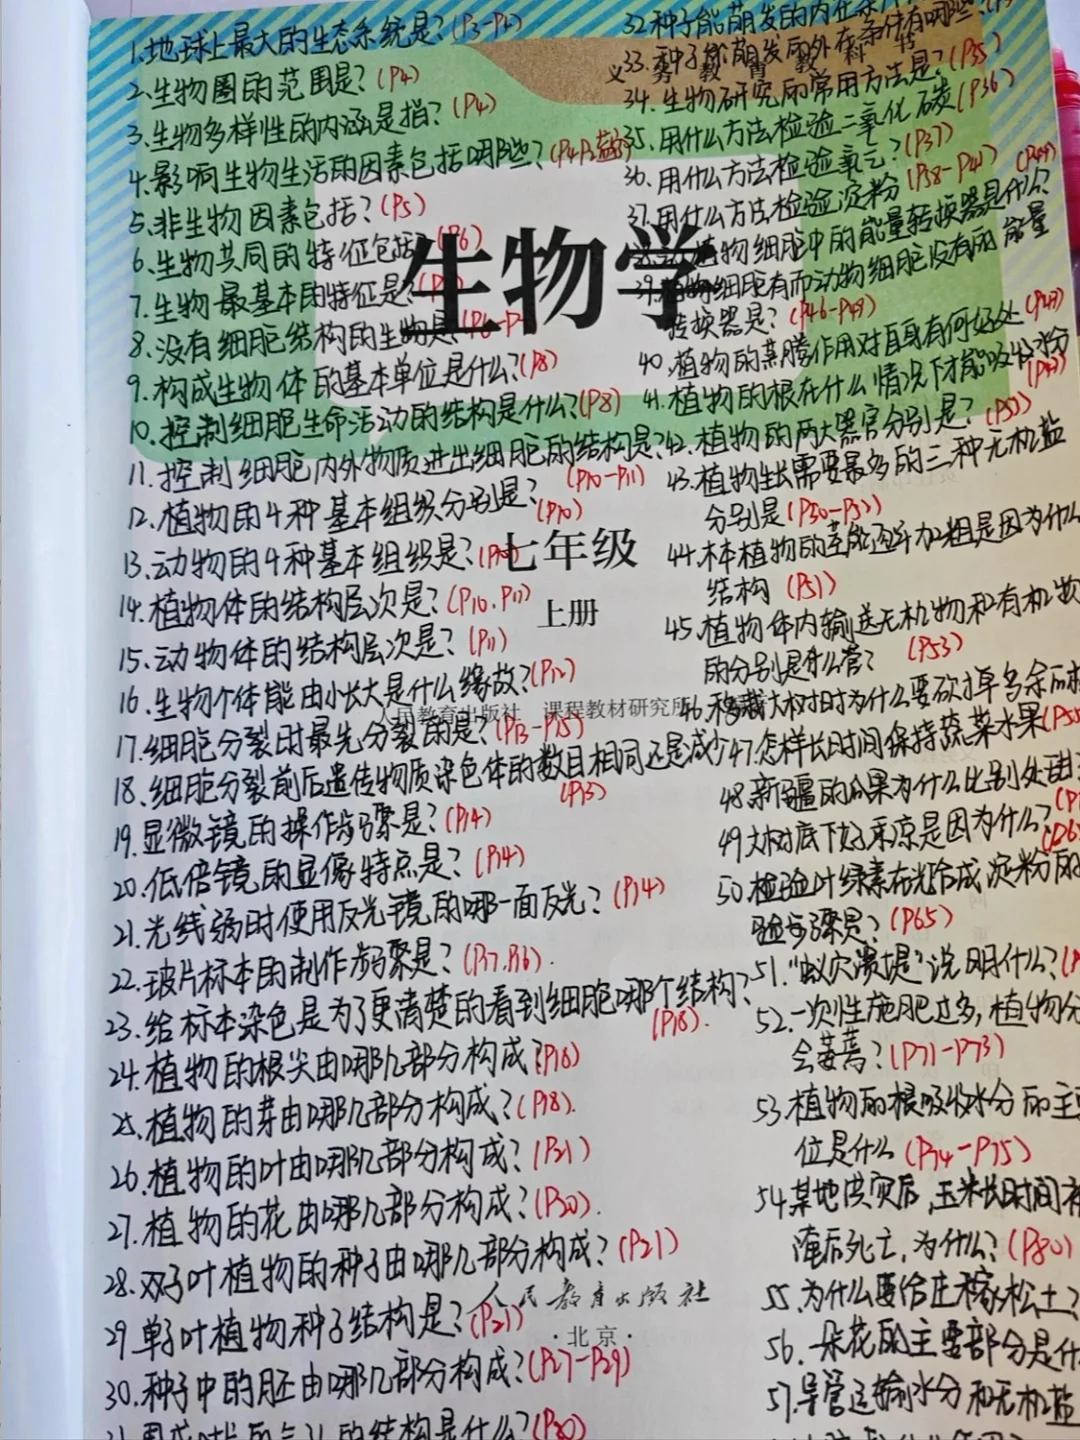 1.地球上最大的生态系统是?(P3-P4)
2.生物圈的范围是?(P4)
3.生物多样性的内涵是指?(P4)
4.影响生物生活的因素包括哪些?
5.非生物因素包括?(P5)
6.生物共同的特征包括
7.生物最基本的特征是?
8.没有细胞结构的生物是
9.构成生物体的基本单位是什么?(P8)
10.控制细胞生命活动的结构是什么?(P8)
11.控制细胞内外物质进出细胞的结构是?
(P10-P11)
12.植物的4种基本组织分别是?(P10)
13.动物的4种基本组织是?
14.植物体的结构层次是?(P10.P11)
15.动物体的结构层次是?(P11)
16.生物个体能由小长大是什么缘故?(P12)
17.细胞分裂时最先分裂的是?(P13-P15)
18.细胞分裂前后遗传物质染色体的数目相同还是减少
(P13)
19.显微镜的操作步骤是?(P14)
20.低倍镜的显像特点是?(P14)
21.光线弱时使用反光镜的哪一面反光?(P14)
22.玻片标本的制作步骤是?(P17.P16).
23.给标本染色是为了更清楚的看到细胞哪个结构?
(P18).
24.植物的根尖由哪几部分构成?(P16)
25.植物的芽由哪几部分构成?(P18).
26.植物的叶由哪几部分构成?(P21)
27.植物的花由哪几部分构成?(P20).
28.双子叶植物的种子由哪几部分构成?(P21)
29单子叶植物种子结构是?(P21)
30.种子中的胚由哪几部分构成?(P27-P29)
的结构是什么?(P30)
32种子能萌发的内在条件
33.种子能萌发的外在条件有哪些?
34.生物研究的常用方法是?(P35)
35.用什么方法检验二氧化碳(P36)
36.用什么方法检验氧气?(P37)
37.用什么方法检验淀粉(P38-P41)
植物细胞中的能量转换器是什么?
39.植物细胞有而动物细胞没有的能量
转换器是?(P46-P49)
40.植物的蒸腾作用对自身有何好处
41.植物的根在什么情况下才能吸收水分
42.植物的两大器官分别是?
43.植物生长需要最多的三种无机盐
分别是
44.木本植物的茎能逐年加粗是因为什么
结构(P51)
45.植物体内输送无机物和有机物
的分别是什么管?(P53)
46.移栽大树时为什么要砍掉多余的
47.怎样长时间保持蔬菜水果
48.新疆的瓜果为什么比别处甜
49大树底下好乘凉是因为什么?
50.检验叶绿素在光合成淀粉的
验步骤是?(P65)
51.“蚁穴溃堤”说明什么?
52.一次性施肥过多,植物
会萎蔫?(P71-P73)
53.植物的根吸收水分的主要
位是什么(P74-P75)
54.某地洪灾后,玉米长时间
淹后死亡,为什么?(P80)
55.为什么要给庄稼松土?
56.一朵花的主要部分是什
57.导管运输水分和无机盐
义务教育教科书
生物学
七年级
上册
人民教育出版社 课程教材研究所
人民教育出版社
·北京·